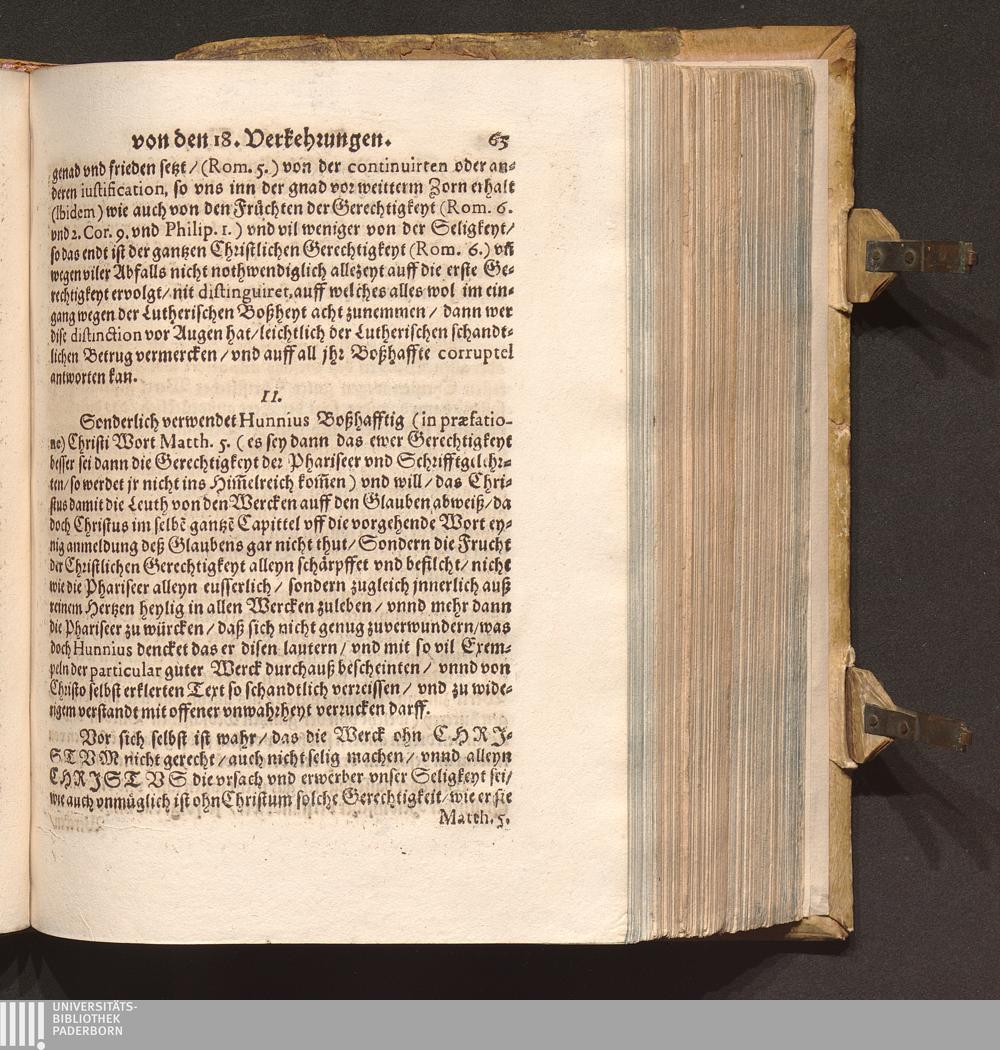 von den 18. Verkehrungen. 63
genad vnd frieden setzt / (Rom. 5.) von der continuirten oder an-
deren iustification, so vns inn der gnad vor weitterm Zorn erhalt
(Ibidem) wie auch von den Früchten der Gerechtigkeyt (Rom. 6.
vnd 2. Cor. 9. vnd Philip. 1.) vnd vil weniger von der Seligkeyt /
so das endt ist der gantzen Christlichen Gerechtigkeyt (Rom. 6.) vñ
wegen viler Abfalls nicht nothwendiglich allezeyt auff die erste Ge-
rechtigkeyt ervolgt / nit distinguiret, auff welches alles wol im ein-
gang wegen der Lutherischen Boßheyt acht zunemmen / dann wer
dise distinction vor Augen hat / leichtlich der Lutherischen schandt-
lichen Betrug vermercken / vnd auff all jhr Boßhaffte corruptel
antworten kan.
II.
Sonderlich verwendet Hunnius Boßhafftig (in præfatio-
ne) Christi Wort Matth. 5. (es sey dann das ewer Gerechtigkeyt
besser sei dann die Gerechtigkeyt der Phariseer vnd Schrifftgelehr-
ten / so werdet jr nicht ins Him̃elreich kom̃en) vnd will / das Chri-
stus damit die Leuth von den Wercken auff den Glauben abweiß / da
doch Christus im selbẽ gantzẽ Capittel vff die vorgehende Wort ey-
nig anmeldung deß Glaubens gar nicht thut / Sondern die Frucht
der Christlichen Gerechtigkeyt alleyn schärpffet vnd befilcht / nicht
wie die Phariseer alleyn eusserlich / sondern zugleich jnnerlich auß
reinem Hertzen heylig in allen Wercken zuleben / vnnd mehr dann
die Phariseer zu würcken / daß sich nicht genug zuverwundern / was
doch Hunnius dencket das er disen lautern / vnd mit so vil Exem-
peln der particular guter Werck durchauß bescheinten / vnnd von
Christo selbst erklerten Text so schandtlich verreissen / vnd zu wide-
rigem verstandt mit offener vnwahrheyt verrucken darff.
Vor sich selbst ist wahr / das die Werck ohn CHRJ-
STVM nicht gerecht / auch nicht selig machen / vnnd alleyn
CHRJSTVS die vrsach vnd erwerber vnser Seligkeyt sei /
wie auch vnmüglich ist ohn Christum solche Gerechtigkeit / wie er sie
Matth. 5.
UNIVERSITÄTS-
BIBLIOTHEK
PADERBORN